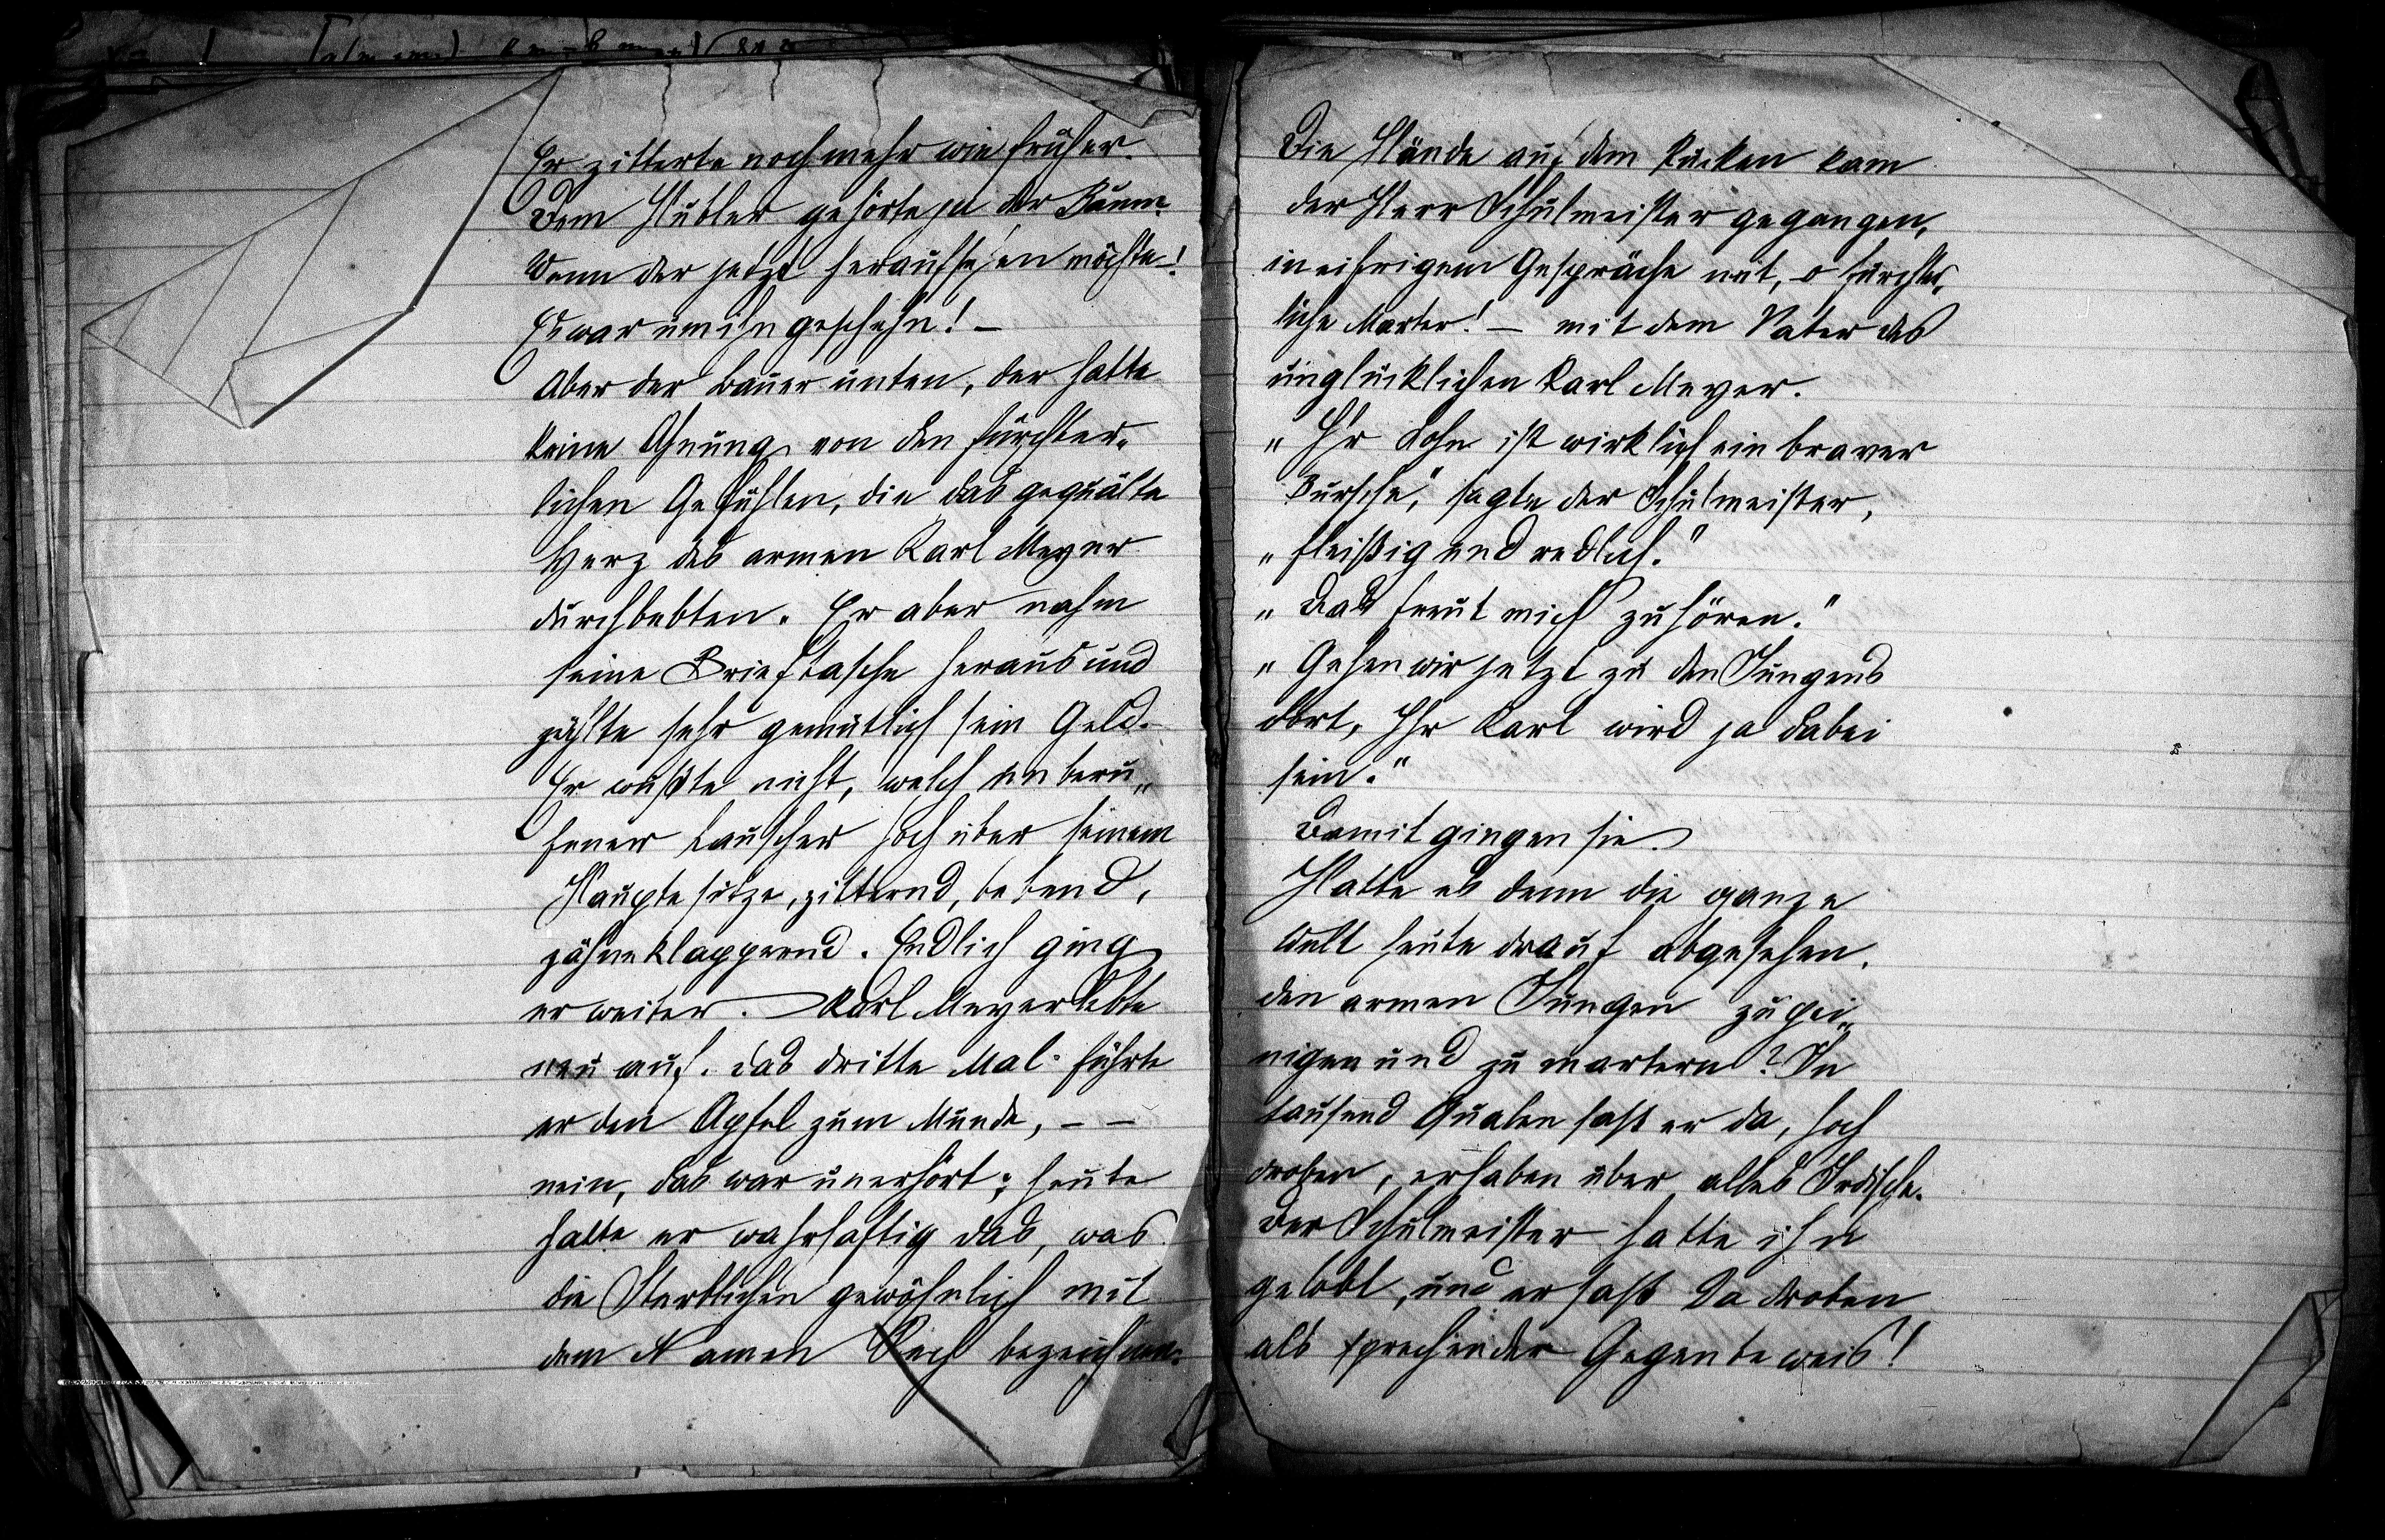 Er zitterte noch mehr wie früher.
Dem Hubler gehörte ja der Baum.
Wenn der jetzt heraufsehen möchte!
Es war um ihn geschehn! –
Aber der Bauer unten, der hatte
keine Ahnung von den fürchter-
lichen Gefühlen, die das gequälte
Herz des armen Karl Meyer
durchbebten. Er aber nahm
seine Brieftasche heraus und
zählte sehr gemütlich sein Geld.
Er wußte nicht, welch unberu-
fener Lauscher hoch über seinem
Haupte sitze, zitternd, bebend,
zähneklappernd. Endlich ging
er weiter. Karl Meyer lebte
neu auf. Das dritte Mal führte
er den Apfel zum Munde, – –
nein, das war unerhört; heute
hatte er wahrhaftig das, was
die Sterblichen gewöhnlich mit
dem Namen Pech bezeichnen.
Die Hände auf dem Rücken kam
der Herr Schulmeister gegangen,
in eifrigem Gespräche mit, – o fürchter-
liche Marter! – mit dem Vater des
unglücklichen Karl Meyer.
"Ihr Sohn ist wirklich ein braver
Bursche," sagte der Schulmeister,
"fleißig und redlich."
"Das freut mich zu hören."
"Gehen wir jetzt zu den Jungens
dort, Ihr Karl wird ja dabei
sein."
Damit gingen sie.
Hatte es denn die ganze
Welt heute drauf abgesehen,
den armen Jungen zu pei-
nigen und zu martern? In
tausend Qualen saß er da, hoch
droben, erhaben über alles Irdische.
Der Schulmeister hatte ihn
gelobt, und er saß da droben
als sprechender Gegenbeweis!